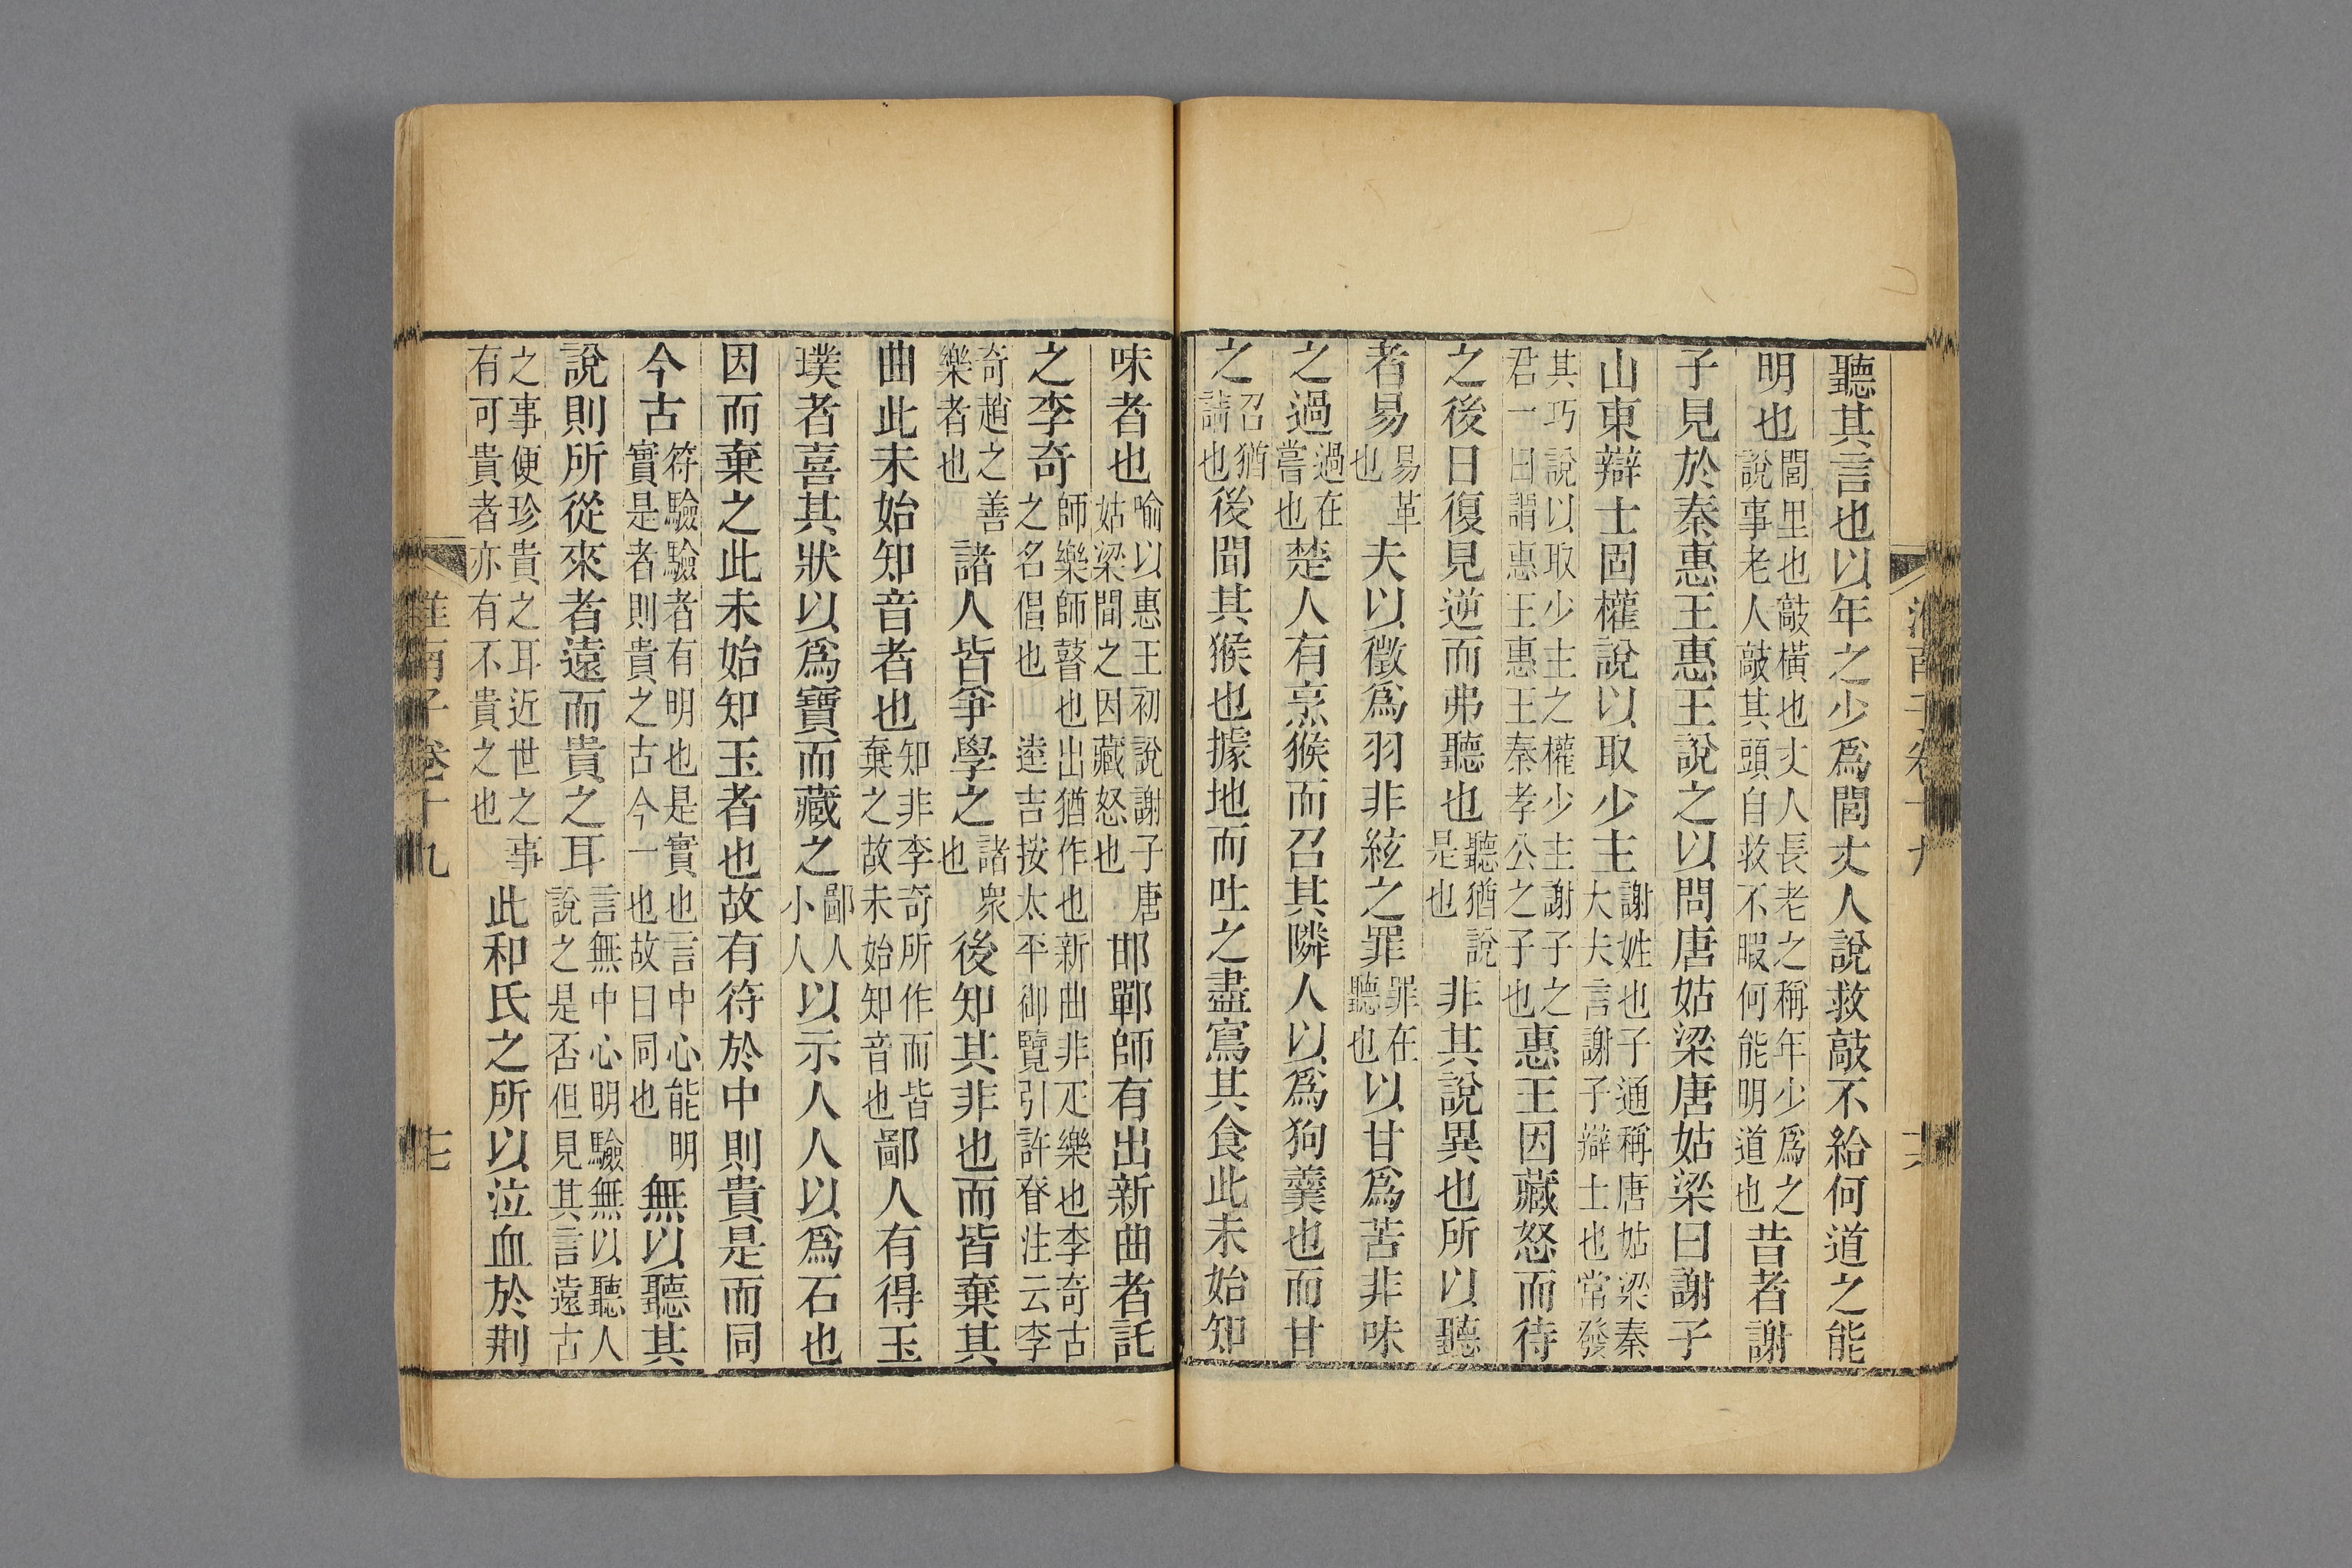 聽其言也以年之少爲閭丈人說救敲不給何道之能
明也閭里也敲橫也丈人長老之稱年少爲之說事老人敲其頭自救不暇何能明道也昔者謝
子見於秦惠王惠王說之以問唐姑梁唐姑梁曰謝子
山東辯士固權說以取少主謝姓也子通稱唐姑梁秦大夫言謝子辯士也常發
其巧說以取少主之權少主謝子之君一曰謂惠王惠王秦孝公之子也惠王因藏怒而待
之後日復見逆而弗聽也聽猶說是也非其說異也所以聽
者易易革也夫以徵爲羽非絃之罪罪在聽也以甘爲苦非味
之過過在嘗也楚人有烹猴而召其隣人以爲狗羹也而甘
之召猶請也後聞其猴也據地而吐之盡寫其食此未始知
味者也喻以惠王初說謝子唐姑梁間之因藏怒也邯鄲師有出新曲者託
之李奇師樂師瞽也出猶作也新曲非疋樂也李奇古之名倡也逵吉按太平御覽引許眘注云李
奇趙之善樂者也諸人皆爭學之諸衆也後知其非也而皆棄其
曲此未始知音者也知非李奇所作而皆棄之故未始知音也鄙人有得玉
璞者喜其狀以爲寶而藏之鄙人小人以示人人以爲石也
因而棄之此未始知玉者也故有符於中則貴是而同
今古符驗驗者有明也是實也言中心能明實是者則貴之古今一也故曰同也無以聽其
說則所從來者遠而貴之耳言無中心明驗無以聽人說之是否但見其言遠古
之事便珍貴之耳近世之事有可貴者亦有不貴之也此和氏之所以泣血於荆
淮南子卷十九
七